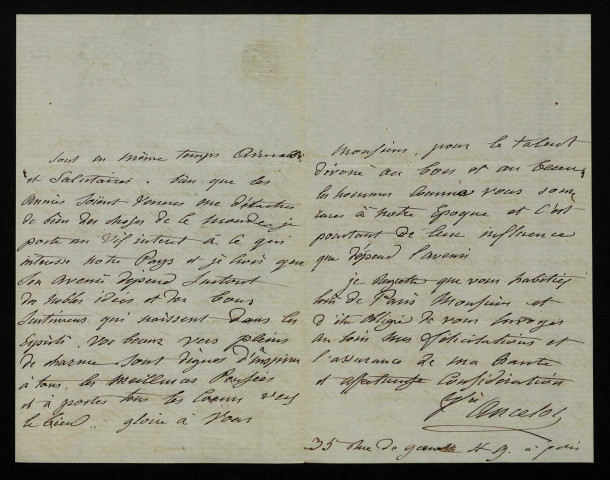 sont en même temps aimables
et Salutaires. bien que les
années soient venues me détacher
de bien des choses de ce monde, je
porte un vif interet à ce qui
interesse notre Pays et je crois que
son avenir dépend surtout
des nobles idées et des bons
Sentimens qui naissent dans les
Esprits. vos beaux vers pleins
de charme sont dignes d'inspirer
à tous, les meilleures Pensées
et à porter tous les coeurs vers
le bien. gloire à Vous
Monsieur, pour le talent
dévoué au bon et au beau,
les hommes comme vous sont
rares à notre Epoque et C'est
pourtant de leur influence
que dépend l'avenir
je Regrette que vous habitiez
loin de Paris Monsieur et
d'être obligée de vous envoyer
au loin mes félicitations et
l'assurance de ma haute
et affectueuse Considération
Ancelot
35 rue de grenelle St g. à paris